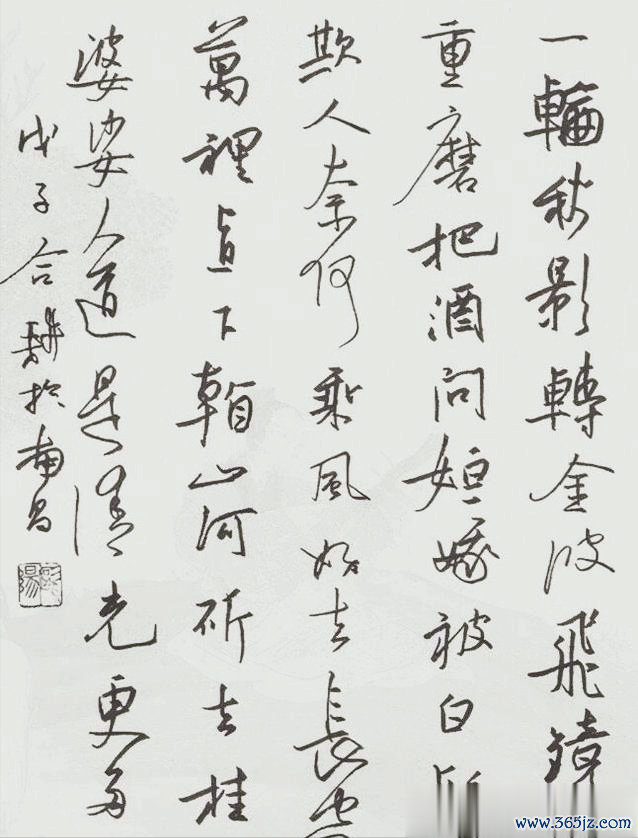 一輪秋影轉金波飛鏡
重磨把酒問姮娥被白
欺人奈何乘風好去長空
萬裡直下看山河斫去桂
婆娑人道是清光更多
戊子合於南昌
www.365jz.com